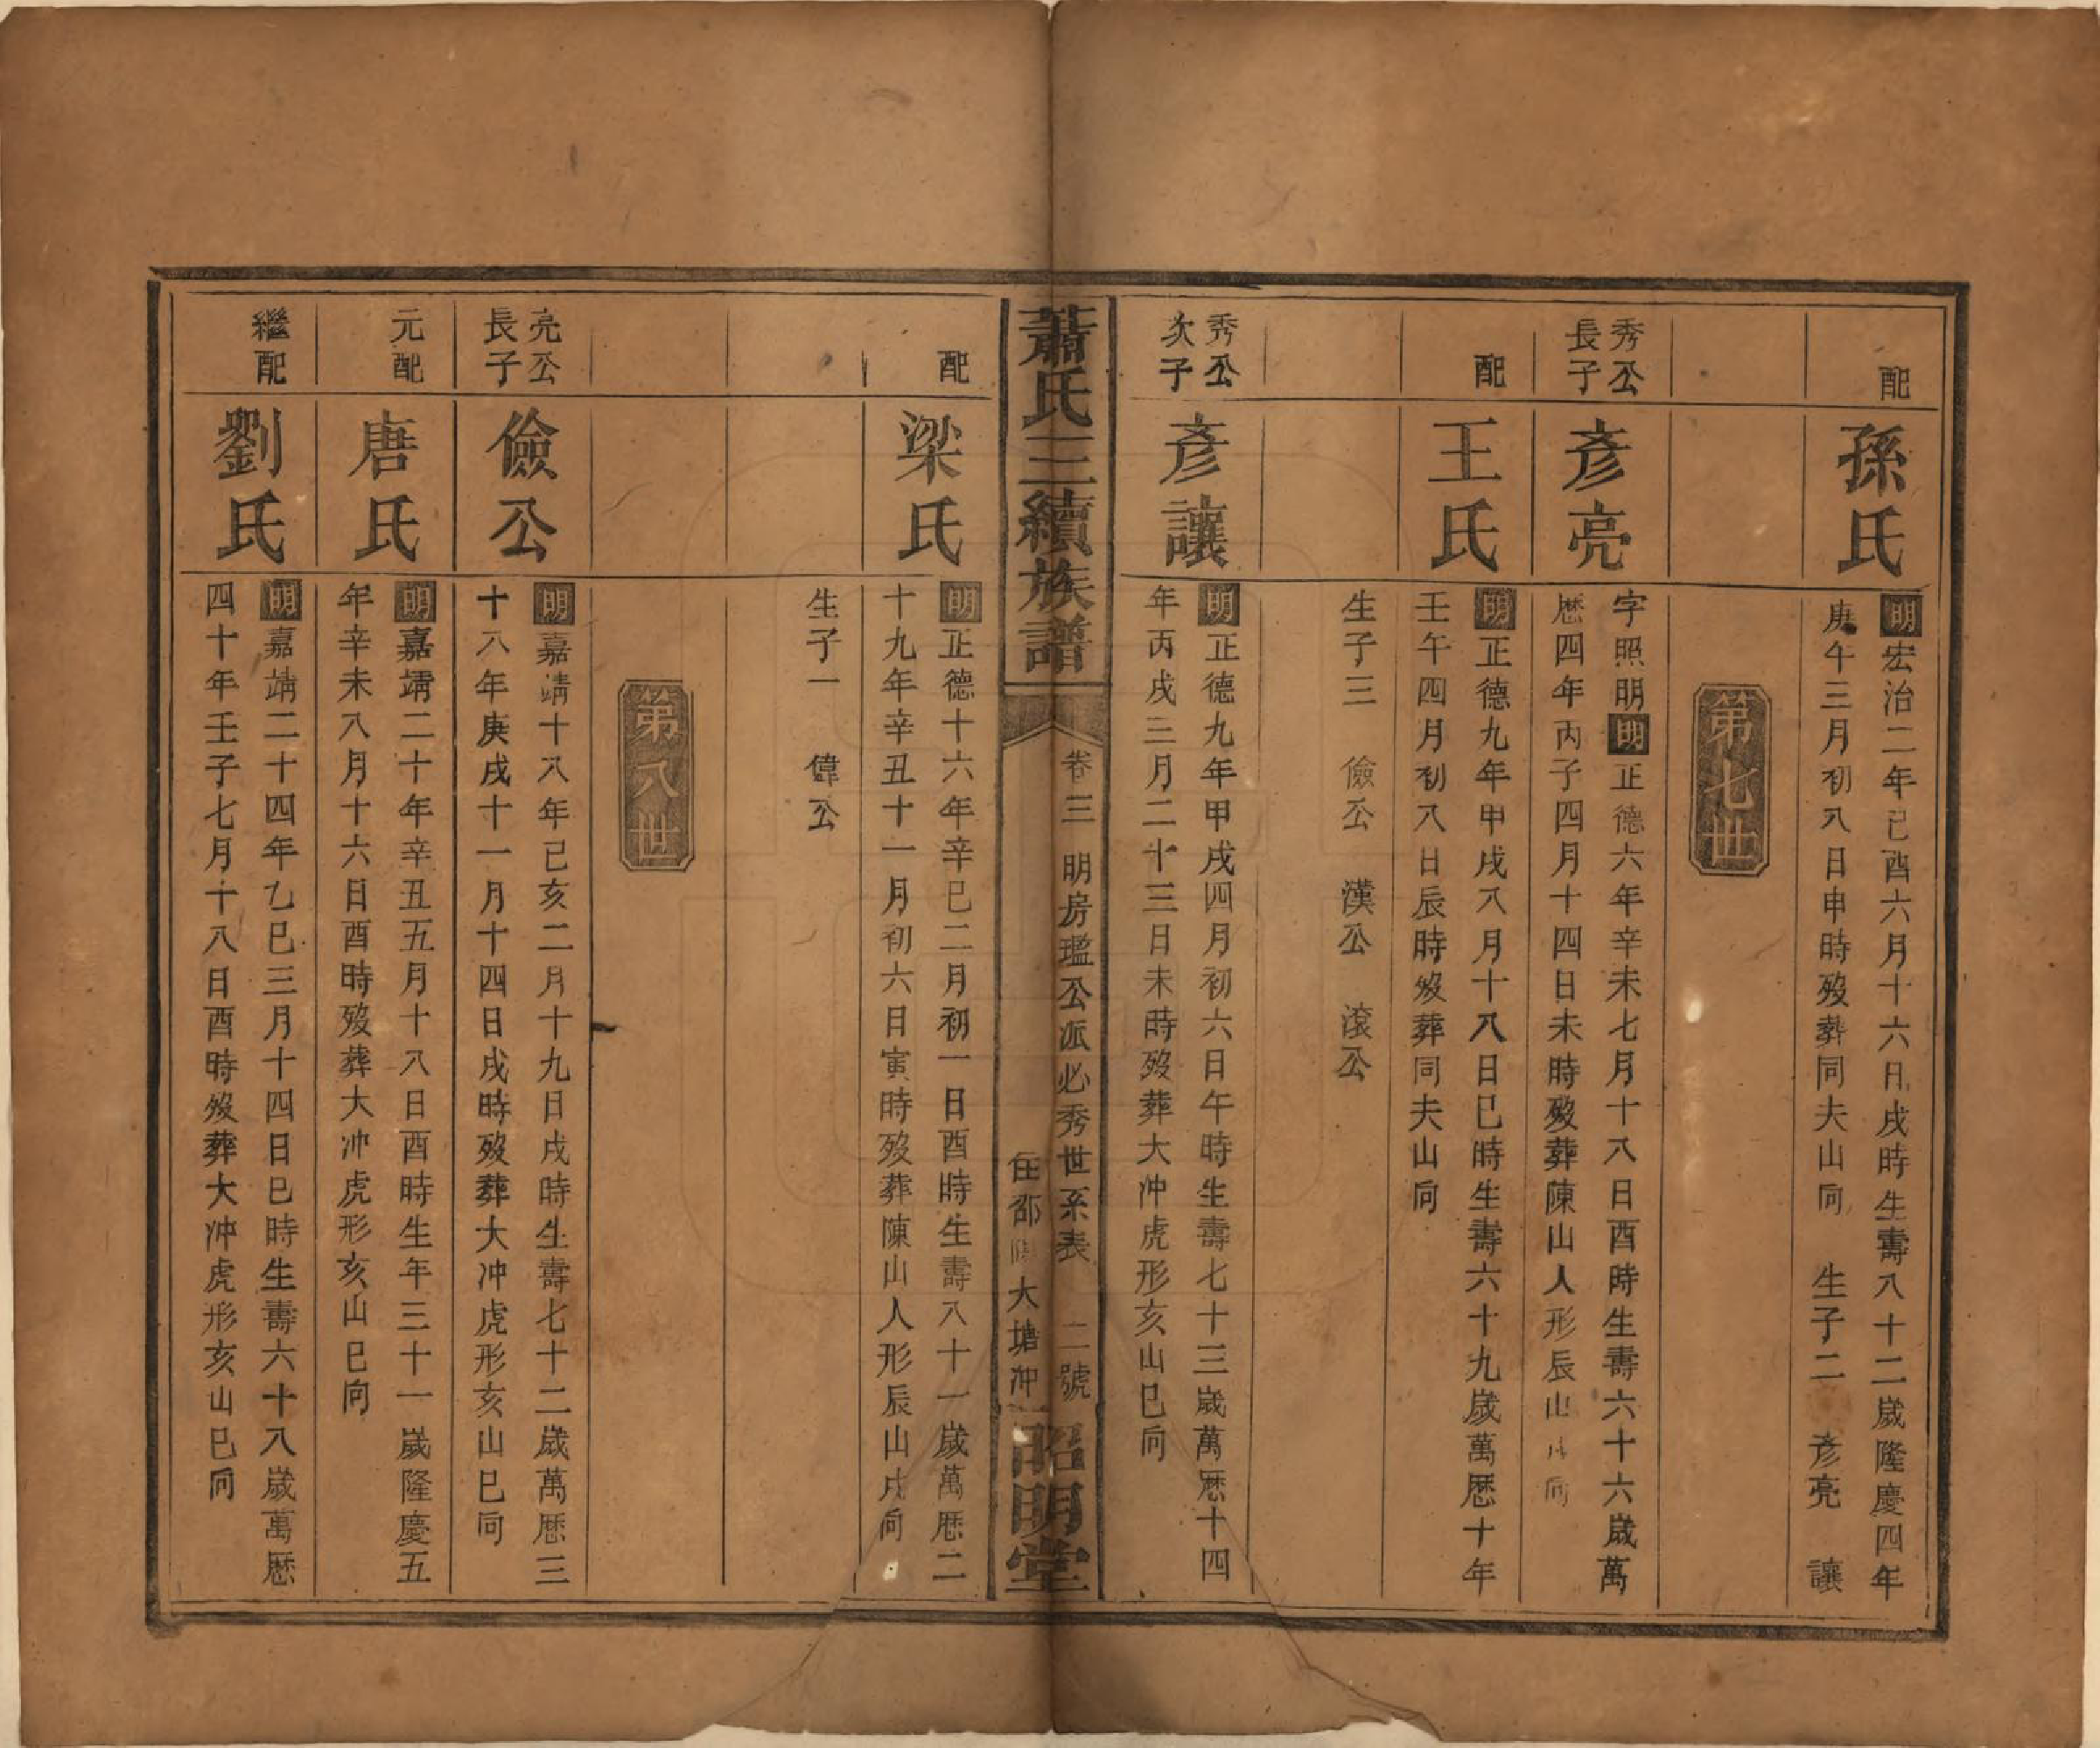 配
孫氏
明宏治二年己酉六月十六日戌時生壽八十二歲隆慶四年
庚午三月初八日申時歿葬同夫山向 生子二 彥亮 讓
第七世
秀公
長子
彥亮
字照明明正德六年辛未七月十八日酉時生壽六十六歲萬
厯四年丙子四月十四日未時歿葬陳山人形辰山戌向
配
王氏
明正德九年甲戌八月十八日巳時生壽六十九歲萬厯十年
壬午四月初八日辰時歿葬同夫山向
生子三 儉公 漢公 滾公
秀公
次子
彥讓
明正德九年甲戌四月初六日午時生壽七十三歲萬厯十四
年丙戌三月二十三日未時歿葬大冲虎形亥山巳向
蕭氏三續族譜
卷三 明房瑥公派必秀世系表 二號
住邵陽大塘冲
昭明堂
配
梁氏
明正德十六年辛巳二月初一日酉時生壽八十一歲萬厯二
十九年辛丑十一月初六日寅時歿葬陳山人形辰山戌向
生子一 偉公
第八世
亮公
長子
儉公
明嘉靖十八年己亥二月十九日戌時生壽七十二歲萬厯三
十八年庚戌十一月十四日戌時歿葬大冲虎形亥山巳向
元配
唐氏
明嘉靖二十年辛丑五月十八日酉時生年三十一歲隆慶五
年辛未八月十六日酉時歿葬大冲虎形亥山巳向
繼配
劉氏
明嘉靖二十四年乙巳三月十四日巳時生壽六十八歲萬厯
四十年壬子七月十八日酉時歿葬大冲虎形亥山巳向